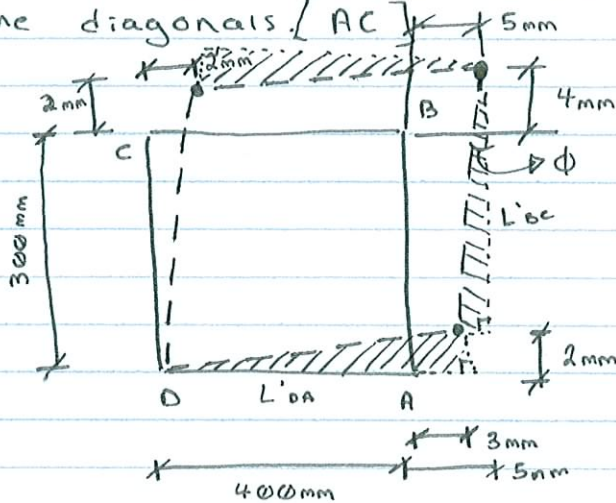 ne diagonals. [AC]
5mm
2mm
2mm
4mm
B
C
ϕ
L'BC
300mm
2mm
D
L'DA
A
3mm
5mm
400mm